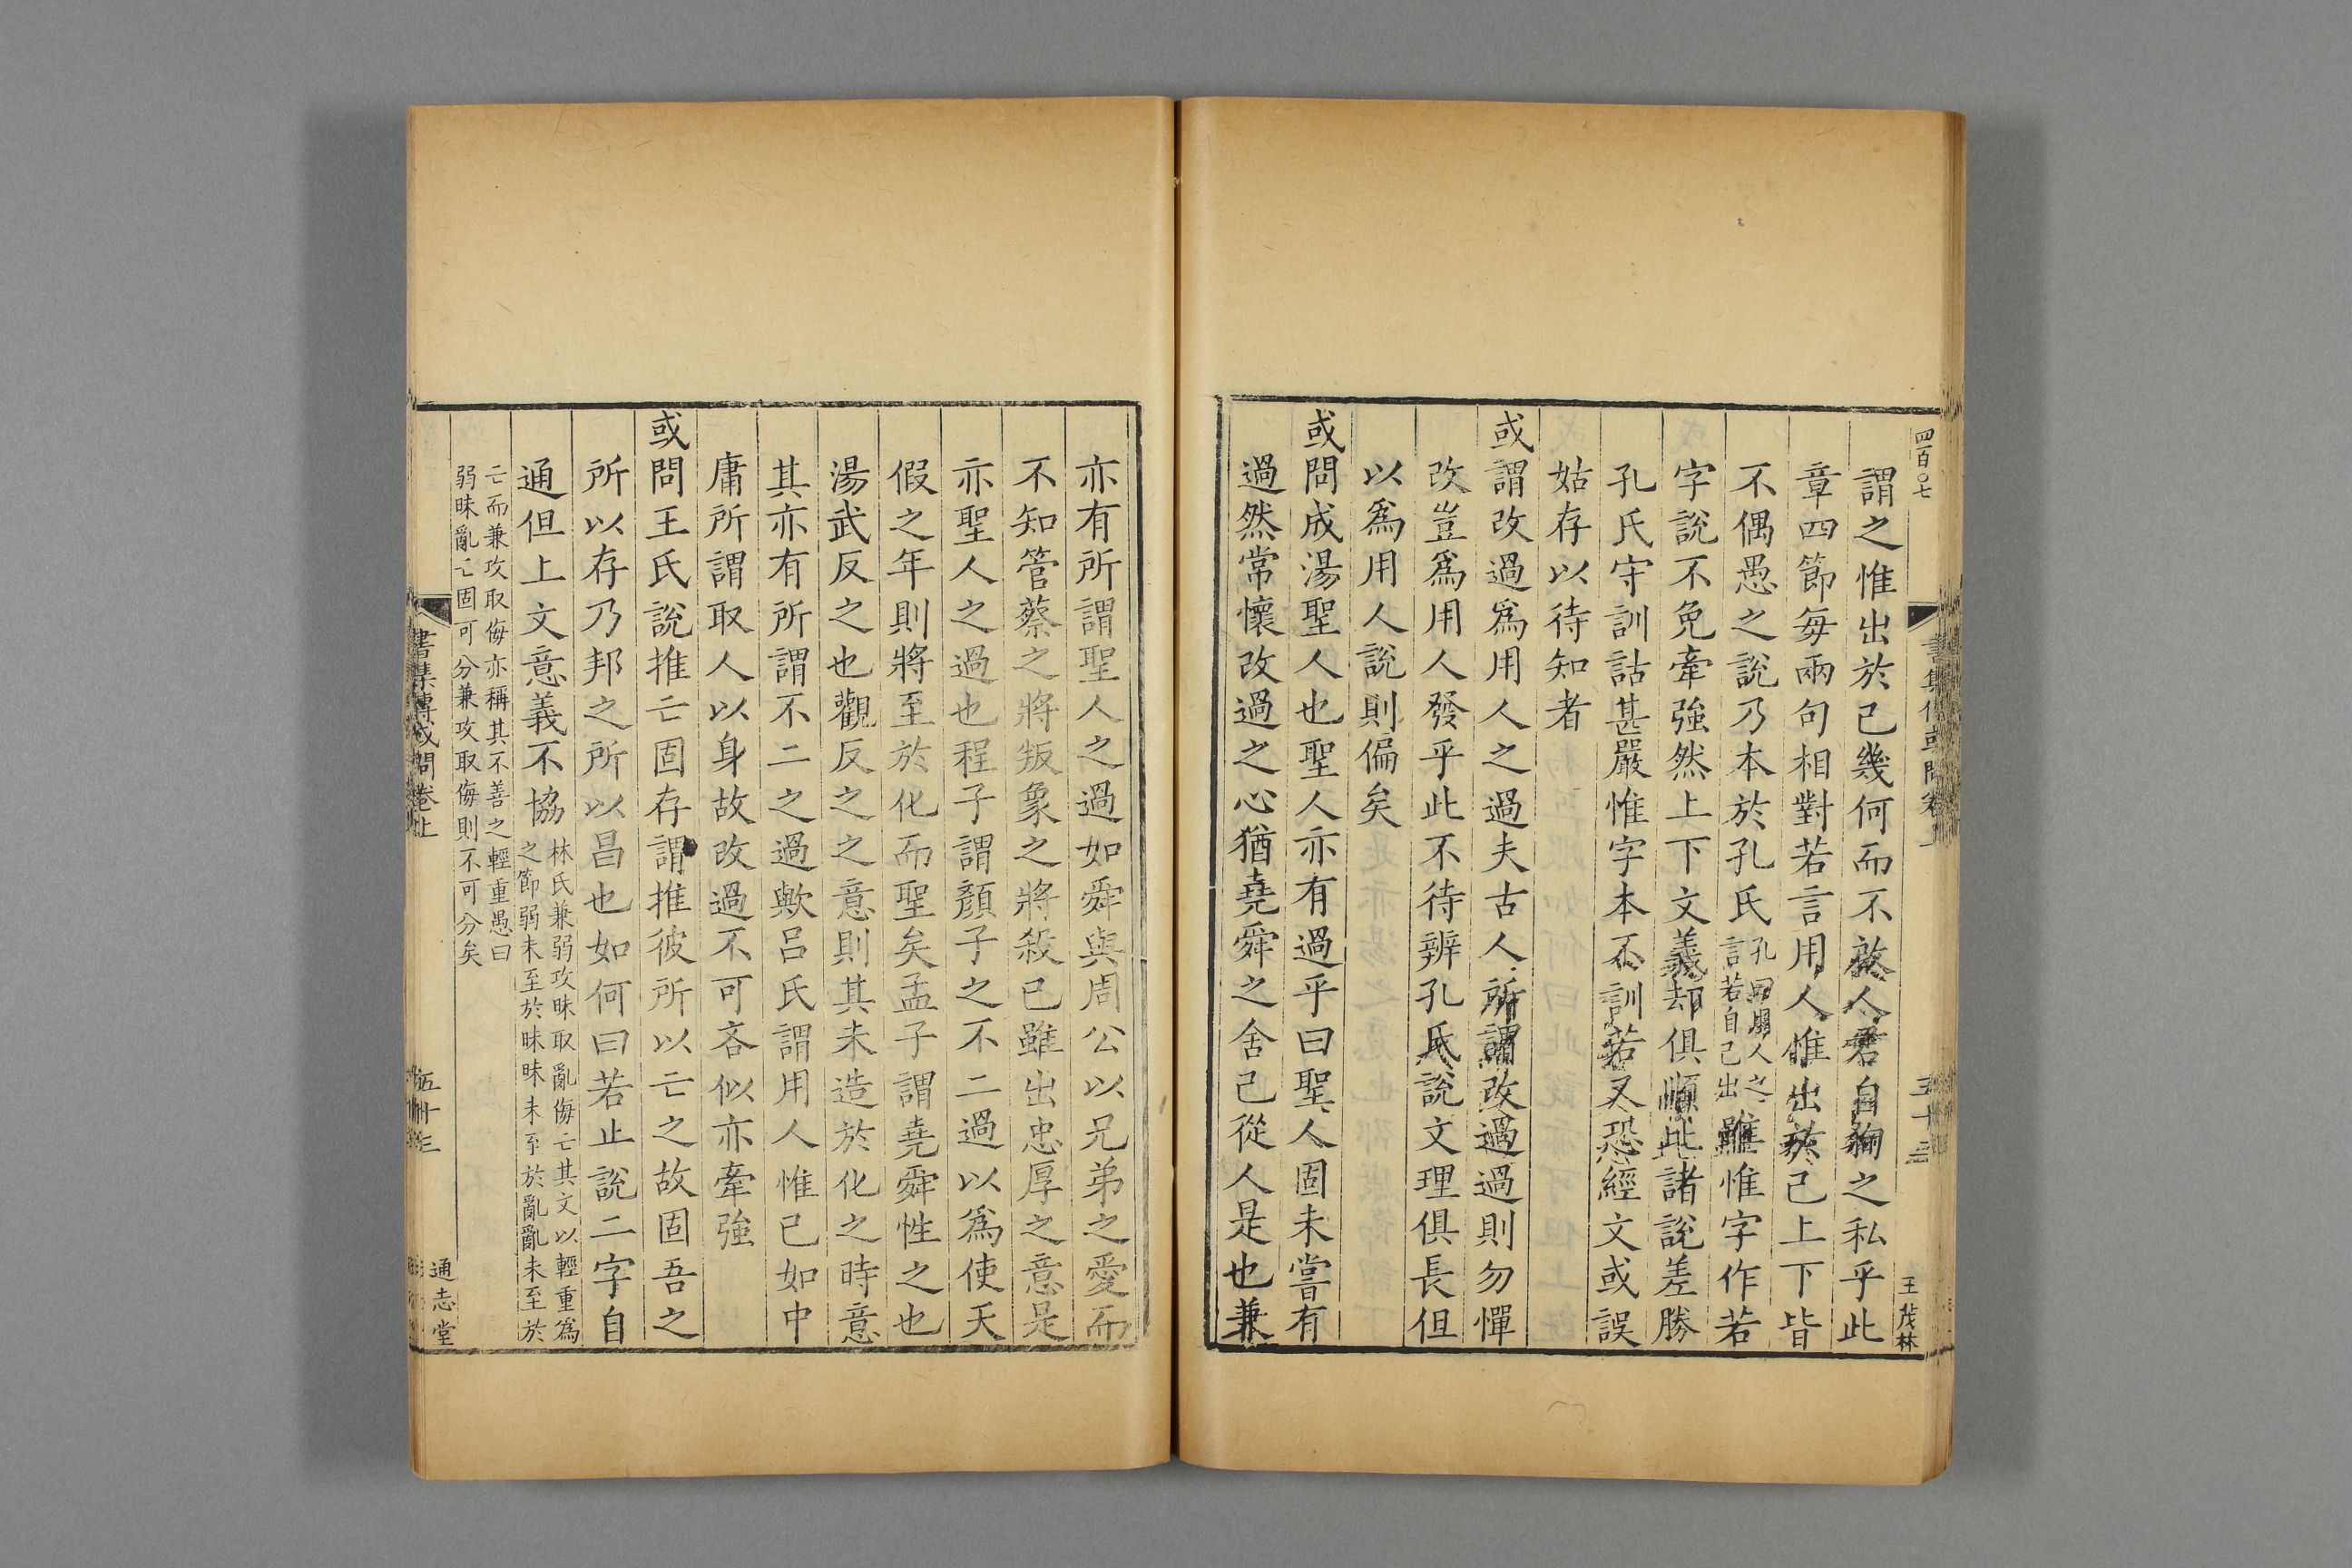 四百○七
謂之惟出於己幾何而不啟人君自徇之私乎此
章四節每兩句相對若言用人惟出於己上下皆
不偶愚之說乃本於孔氏孔曰用人之言若自己出雖惟字作若
字說不免牽強然上下文義却俱順此諸說差勝
孔氏守訓詁甚嚴惟字本不訓若又恐經文或誤
姑存以待知者
或謂改過為用人之過夫古人所謂改過過則勿憚
改豈為用人發乎此不待辨孔氏說文理俱長但
以為用人說則偏矣
或問成湯聖人也聖人亦有過乎曰聖人固未嘗有
過然常懷改過之心猶堯舜之舍己從人是也兼
書集傳或問卷上
五十三
王茂林
亦有所謂聖人之過如舜與周公以兄弟之愛而
不知管蔡之將叛象之將殺已雖出忠厚之意是
亦聖人之過也程子謂顏子之不二過以為使天
假之年則將至於化而聖矣孟子謂堯舜性之也
湯武反之也觀反之之意則其未造於化之時意
其亦有所謂不二之過歟呂氏謂用人惟已如中
庸所謂取人以身故改過不可吝似亦牽強
或問王氏說推亡固存謂推彼所以亡之故固吾之
所以存乃邦之所以昌也如何曰若止說二字自
通但上文意義不協林氏兼弱攻昧取亂侮亡其文以輕重為
之節弱未至於昧昧未至於亂亂未至於
亡而兼攻取侮亦稱其不善之輕重愚曰
弱昧亂亡固可分兼攻取侮則不可分矣
書集傳或問卷上
五十三
通志堂